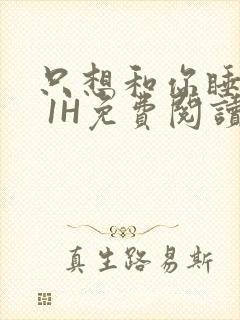 只想和你睡
1H免費閱讀
真生路易斯